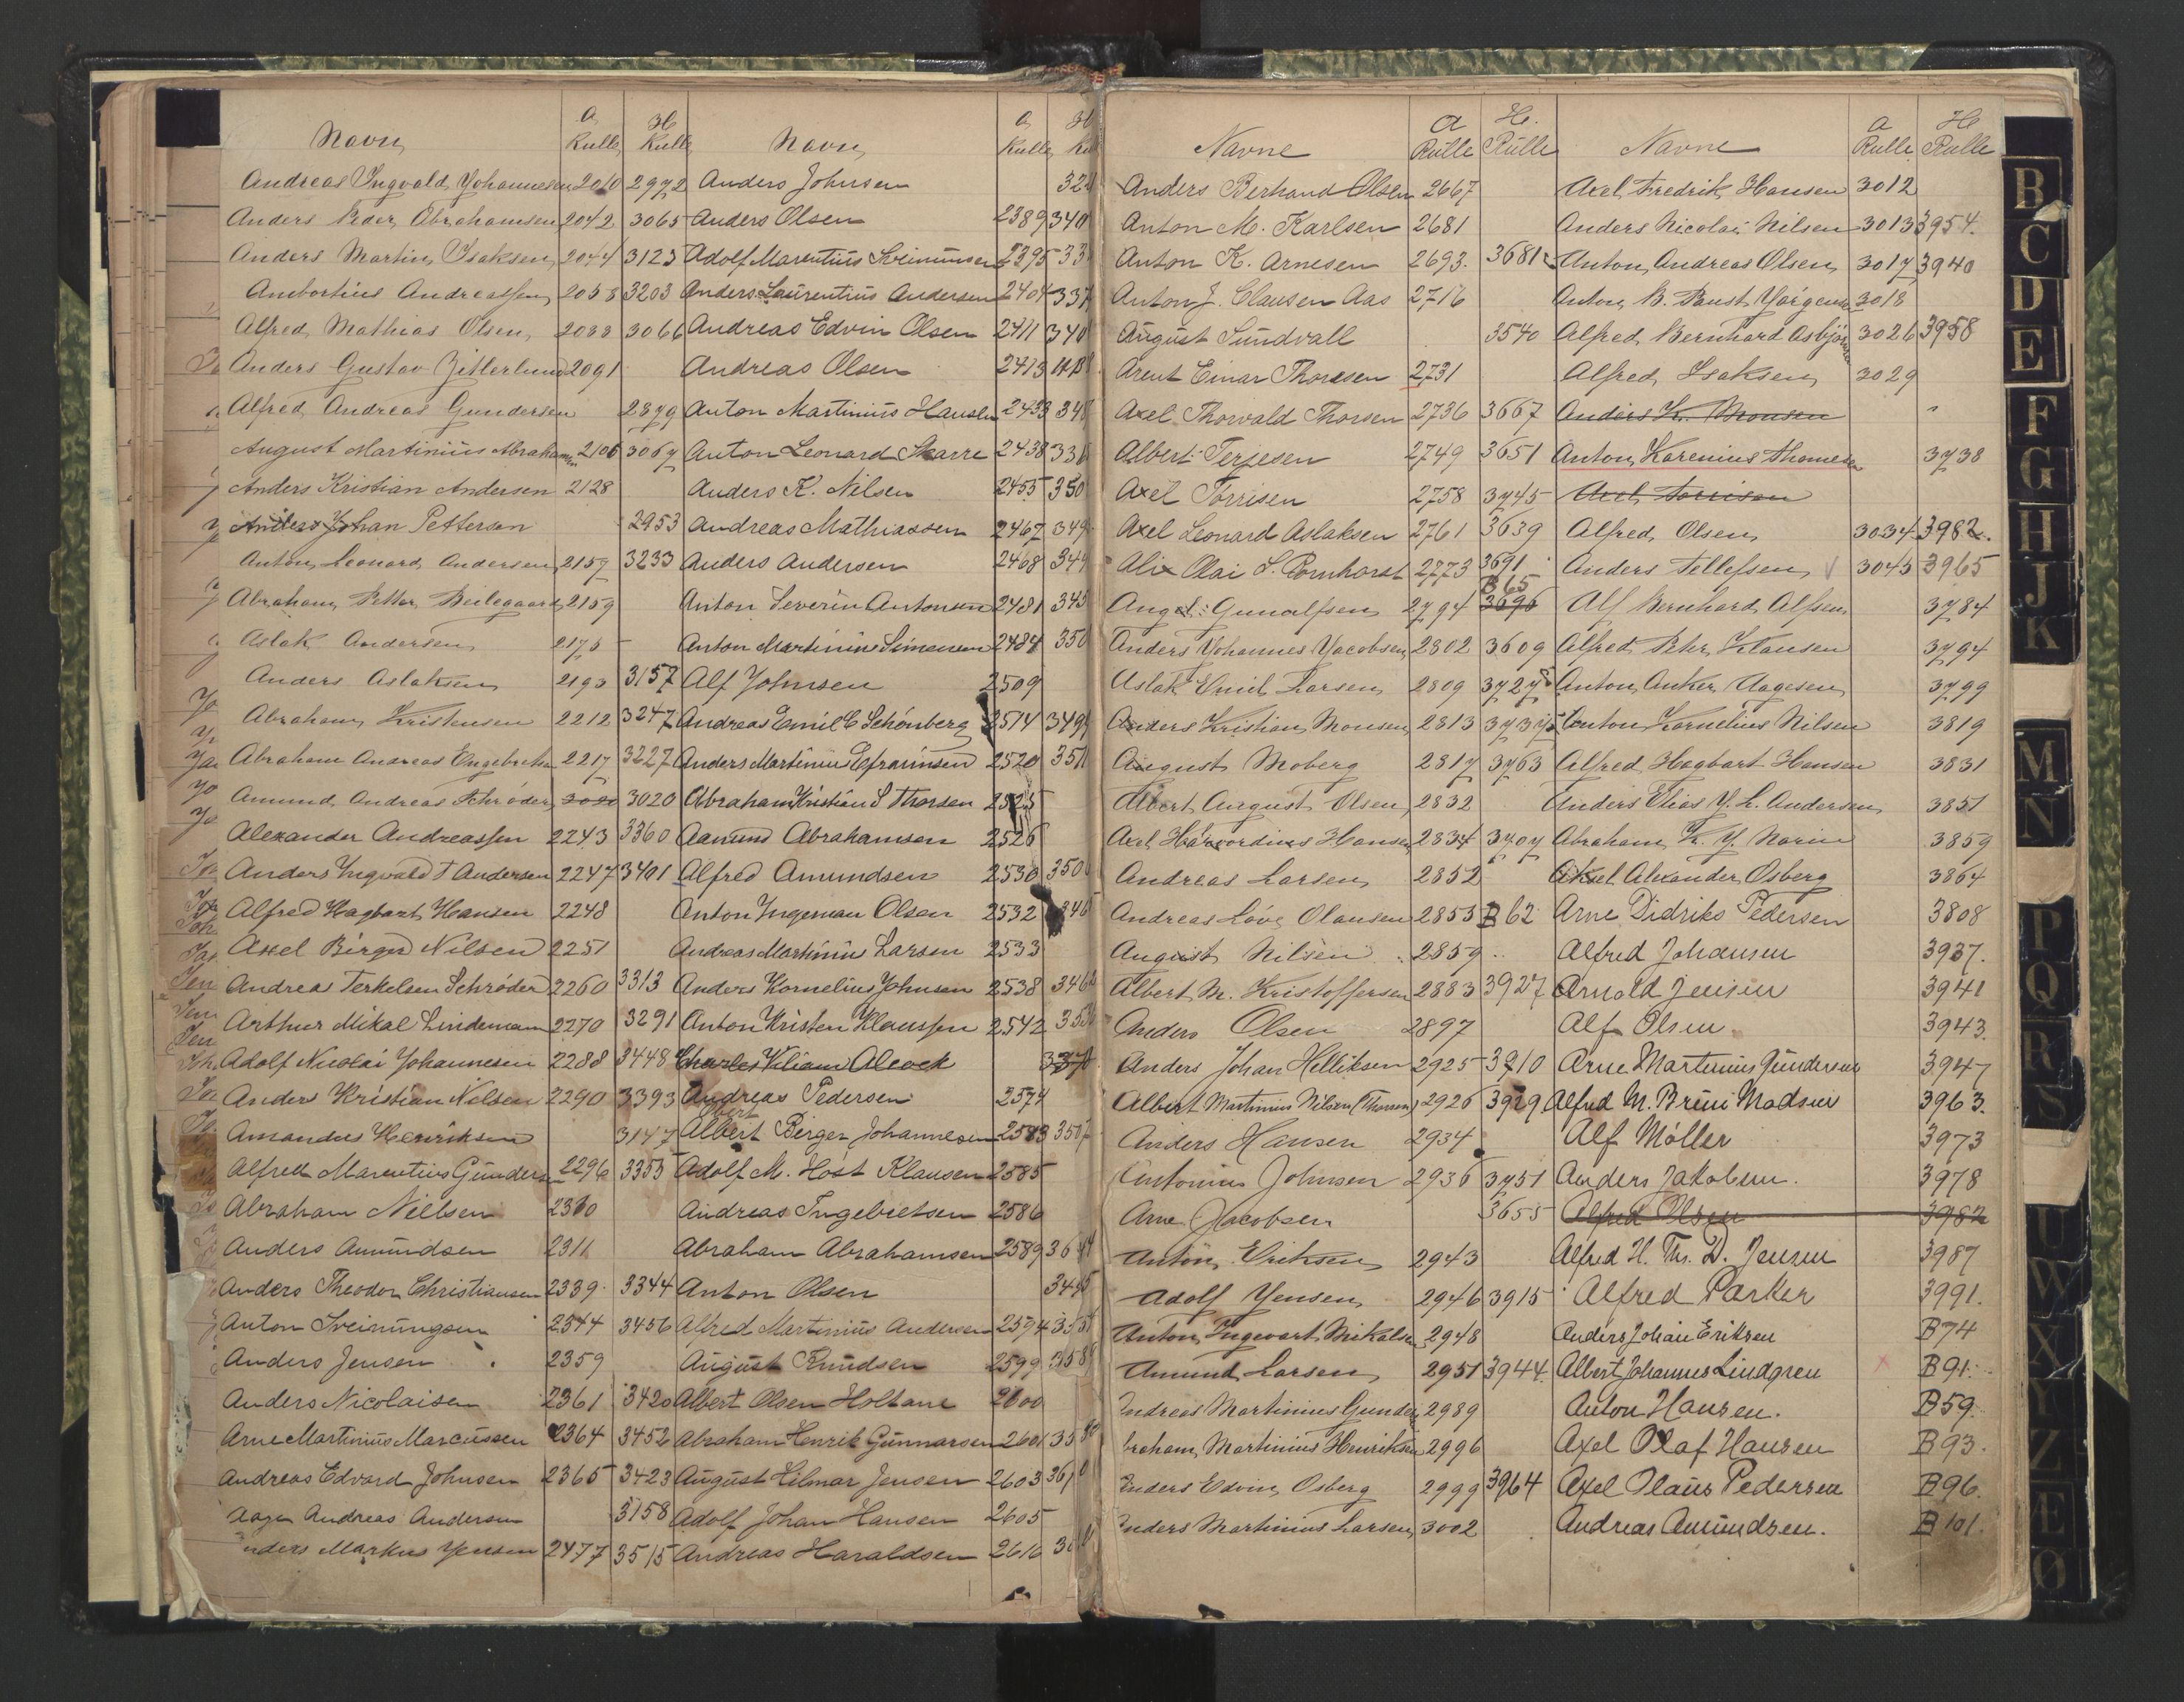 Navn A Rulle H Rulle
Andreas Ingvald Johannesen 2010 2972
Anders Peder Abrahamsen 2042 3065
Anders Martin Isaksen 2044 3123
Ambortius Andreassen 2058 3203
Alfred Mathias Olsen 2088 3066
Anders Gustav Zitterlund 2091
Alfred Andreas Gundersen 2879
August Martinius Abrahamsen 2106 3067
Anders Kristian Andersen 2128
Johan Pettersen 2953
Anton Leonard Andersen 2157 3233
Abraham Petter Beilegaard 2159
Aslak Andersen 2175
Anders Aslaksen 2193 3157
Abraham Kristensen 2212 3247
Abraham Andreas Engebretsen 2217 3227
Amund Andreas Schrøder 3020 3020
Alexander Andreassen 2243 3360
Anders Ingvald T Andersen 2247 3401
Alfred Hagbart Hansen 2248
Axel Birger Nilsen 2251
Andreas Terkelsen Schrøder 2260 3313
Arthur Mikal Lindemann 2270 3291
Adolf Nicolai Johannesen 2288 3448
Anders Kristian Nilsen 2290 3393
Amandus Henriksen 3147
Alfred Marentius Gundersen 2296 3355
Abraham Nielsen 2310
Anders Amundsen 2311
Anders Theodor Christiansen 2339 3344
Anton Sveinungsen 2344 3456
Anders Jensen 2359
Anders Nicolaisen 2361 3420
Arne Martinius Marcussen 2364 3452
Andreas Edvard Johnsen 2365 3423
Aagen Andreas Andersen 3158
nders Markus Jensen 2477 3515
Navn A Rulle H
Anders Johnsen 32
Anders Olsen 2389 340
Adolf Marentius Sveinunsen 2395 33
Anders Laurentius Andersen 2404 337
Andreas Edvin Olsen 2411 340
Andreas Olsen 2413
Anton Martinius Hansen 2433 348
Anton Leonard Skarre 2438 336
Anders K. Nilsen 2455 350
Andreas Mathiassen 2467 349
Anders Andersen 2468 349
Anton Severin Antonsen 2481 345
Anton Martinius Simonsen 2484 350
Alf Johnsen 2509
Andreas Emil C Schönberg 2514 349
Anders Martinius Efraimsen 2520 351
Abraham Kristian S Thorsen 2525
Aanund Abrahamsen 2526
Alfred Amundsen 2530 350
Anton Ingeman Olsen 2532 346
Andreas Martinius Larsen 2533
Anders Kornelius Johnsen 2538 346
Anton Kristen Klaussen 2542 353
Charles Viliam Alcock 337
Andreas Pedersen 2574
Albert Birger Johannesen 2583 350
Adolf M. Höst Klausen 2585
Andreas Ingebretsen 2586
Abraham Abrahamsen 2589 36
Anton Olsen 34
Alfred Martinius Andersen 2594 355
August Knudsen 2599 358
Albert Olsen Holtane 2600
Abraham Henrik Gunnarsen 2601 35
August Hilmar Jensen 2603 36
Adolf Johan Hansen 2605
Andreas Haraldsen 2616 3
Navne A Rulle H. Rulle
Anders Berhand Olsen 2667
Anton M. Karlsen 2681
Anton K. Arnesen 2693. 3681
Anton J. Clausen Aas 2716
August Sundvall 3540
Arent Einar Thoresen 2731
Axel Thorvald Thorsen 2736 3667
Albert Terjesen 2749 3651
Axel Torrisen 2758 3745
Axel Leonard Aslaksen 2761 3639
Alix Olai S. Pornhorst 2773 3691
Gunalfsen 2794 B 65 3696
Anders Johannes Jacobsen 2802 3609
Aslak Emil Larsen 2809 3727
Anders Kristian Monsen 2813 3737
August Moberg 2817 3763
Albert August Olsen 2832
Axel Havordius Hansen 2834 3707
Andreas Larsen 2852
Andreas Løve Olausen 2855 B 62
August Nilsen 2859
Albert M. Kristoffersen 2883 3927
Anders Olsen 2897
Anders Johan Helliksen 2925 3710
Albert Martinius Nilsen (Thorsen) 2926 3929
Anders Hansen 2934
Antonius Johnsen 2936 3751
Arne Jacobsen 3655
Anton Eriksen 2943
Adolf Jensen 2946 3915
Anton Ingevart Mikalsen 2948
Amund Larsen 2951 3944
Andreas Martinius Gunders 2989
braham Martinius Henriksen 2996
Anders Edvin Osberg 2999 3964
Anders Martinius Larsen 3002
Navne A Rulle H Rulle
Axel Fredrik Hansen 3012
Anders Nicolai Nilsen 3013 3954.
Anton Andreas Olsen 3017 3940
Anton B. Paust Jørgensen 3018
Alfred Bernhard Asbjørnsen 3026 3958
Alfred Isaksen 3029
Anders K. Monsen
Anton Karenius Thomesen 3738
Axel Torrisen
Alfred Olsen 3034 3982.
Anders Tellefsen 3043 3965
Alf Bernhard Alfsen 3784
Alfred Pehr Klausen 3794
Anton Anker Aagesen 3799
Anton Kornelius Nilsen 3819
Alfred Hagbart Hansen 3831
Anders Elias J. L. Andersen 3851
Abraham K. J. Marin 3859
Aksel Alexander Osberg 3864
Arne Didriks Pedersen 3808
Alfred Johansen 3937.
Arnold Jensen 3941
Alf Olsen 3943.
Arne Martinius Gundersen 3947
Alfred M. Bruu Madsen 3963.
Alf Möller 3973
Anders Jakobsen. 3978
Alfred Olsen 3982
Alfred H. Th. D. Jensen 3987
Alfred Parker 3991.
Anders Johan Eriksen B 74
Albert Johannes Lindgren B 91.
Anton Hansen. B 59.
Axel Olaf Hansen B 93.
Axel Olaus Pedersen B 96.
Andreas Amundsen. B 101.
B
C
D
E
F
G
H
J
K
M
N
P
Q
R
S
T
W
X
Y
Z
Æ
Ø